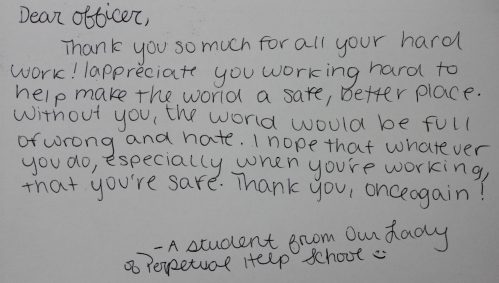 Dear officer,
Thank you so much for all your hard
work! I appreciate you working hard to
help make the world a safe, better place.
Without you, the world would be full
of wrong and hate. I hope that whatever
you do, especially when you're working,
that you're safe. Thank you, once again!
- A student from Our Lady
of Perpetual Help School ☺